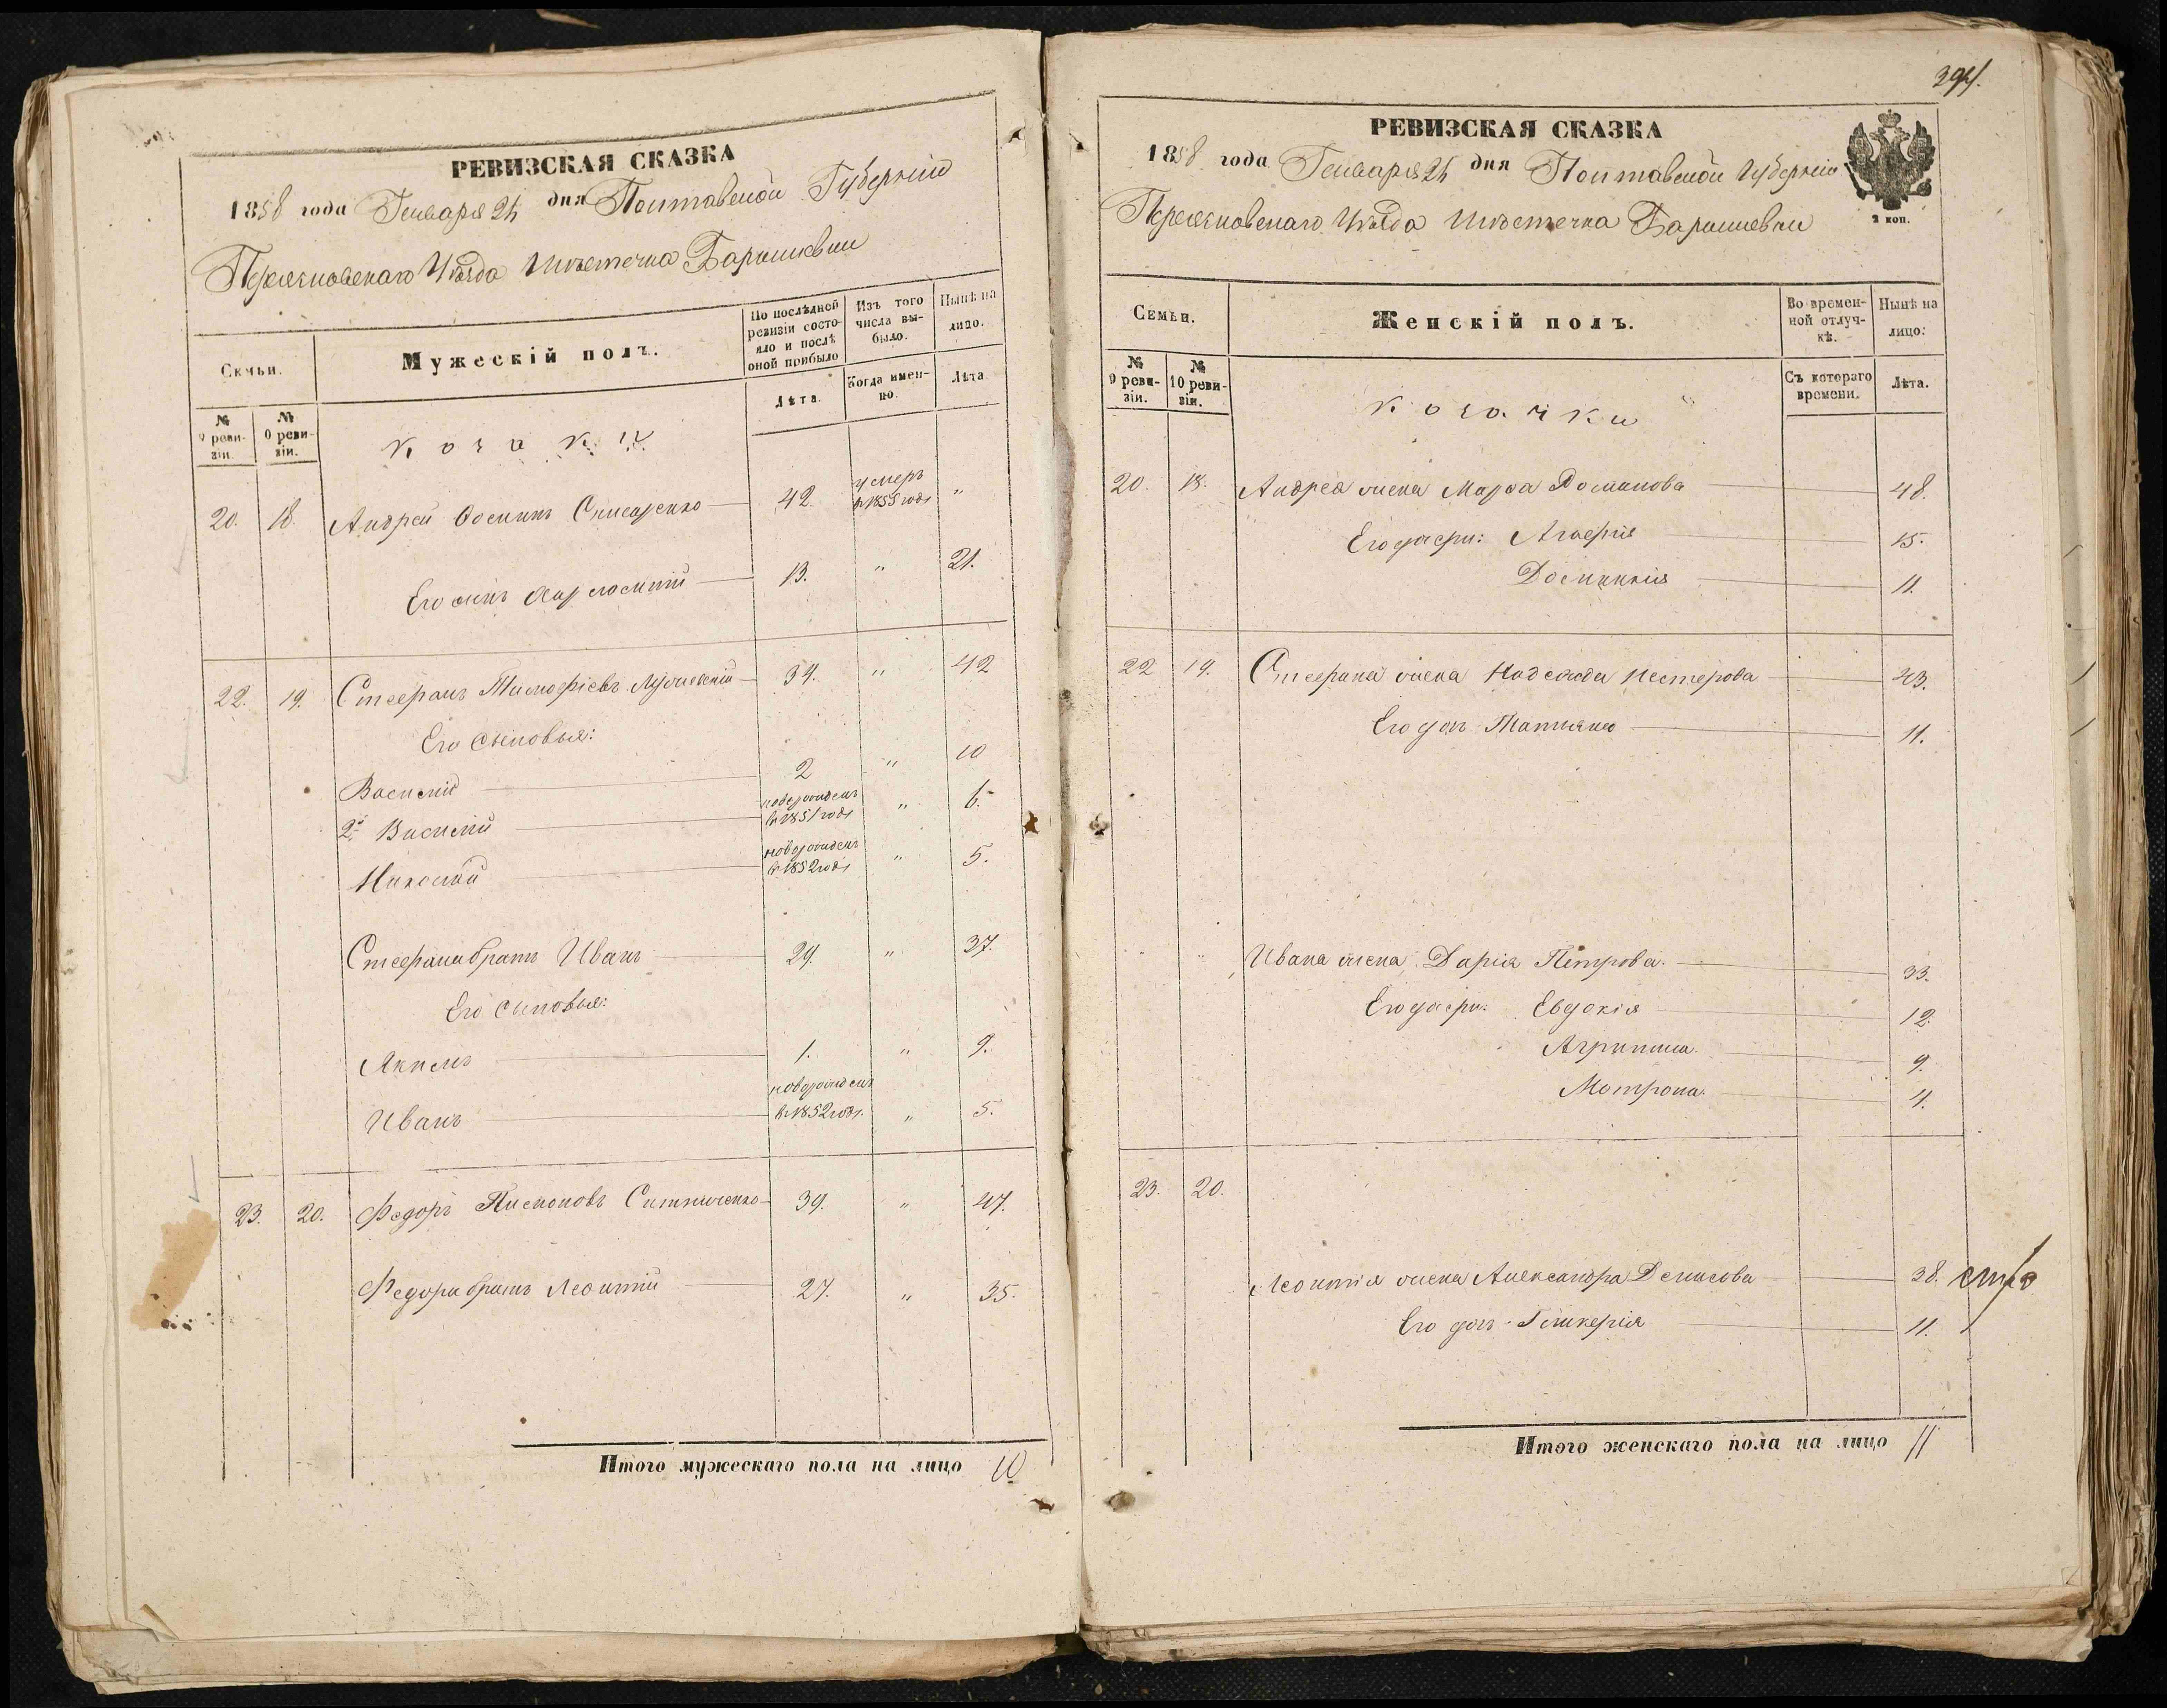 РЕВИЗСКАЯ СКАЗКА
1858 года Генваря 24 дня Полтавской Губерніи
Переяславскаго Уѣзда Мѣстечка Баришевки
Семьи.
Мужескій полъ.
По послѣдней ревизіи состояло и послѣ оной прибыло
Изъ того числа выбыло.
Нынѣ на лицо.
№ 9 ревизіи.
№ 10 ревизіи.
Козаки
Лѣта.
Когда именно.
Лѣта
20. 18. Андрей Осиповъ 42. умеръ в 1855 годѣ "
Его сынъ 13. " 21.
22. 19. Стефанъ Тимофіевъ 34. " 42
Его сыновья:
Василій 2 " 10
2й Василій новорожденъ в 1851 годѣ " 6.
Николай новорожденъ в 1852 годѣ " 5.
Стефана братъ Иванъ 29. " 37.
Его сыновья:
Якимъ 1. " 9.
Иванъ новорожденъ в 1852 годѣ. " 5.
23. 20. Федоръ Пимоновъ Ситниченко 39. " 47.
Федора братъ Леонтій 27. " 35.
Итого мужескаго пола на лицо 10
394.
РЕВИЗСКАЯ СКАЗКА
1858 года Генваря 24 дня Полтавской Губерніи
Переяславскаго Уѣзда Мѣстечка Баришевки
2 коп.
Семьи.
Женскій полъ.
Во временной отлучкѣ.
Нынѣ на лицо:
№ 9 ревизіи.
№ 10 ревизіи.
Козачки
Съ котораго времени.
Лѣта.
20. 18. Андрея жена Марфа Романова 48.
Его дочери: Агафія 15.
Домникія 11.
22 19. Стефана жена Надежда Нестерова 43.
Его дочь Татіяна 11.
Ивана жена Дарія Петрова. 33.
Его дочери: Евдокія 12.
Агрипина. 9.
Мотрона. 4.
23. 20.
Леонтія жена Александра Денисова 38.
Его дочь Гликерія 11.
Итого женскаго пола на лицо 11